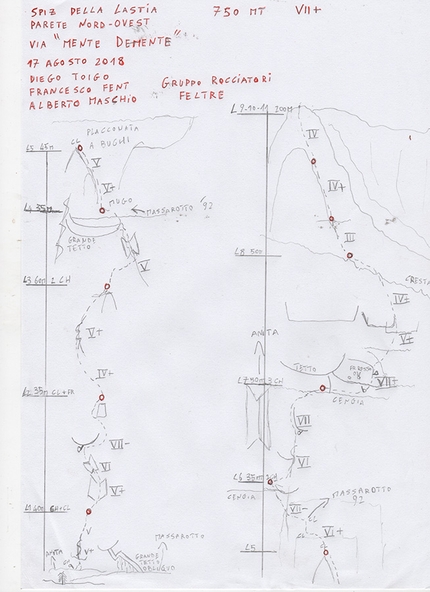 SPIZ DELLA LASTIA 750 MT VII+
PARETE NORD-OVEST
VIA "MENTE DEMENTE"
17 AGOSTO 2018
DIEGO TOIGO
FRANCESCO FENT
ALBERTO MASCHIO
GRUPPO ROCCIATORI
FELTRE
PLACCONATA
A BUCHI
CL
L5 45m
V
V+
MUGO
L4 35m
MASSAROTTO '92
GRANDE
TETTO
V
L3 60m 2 CH
V+
IV+
L2 35m CL+FR
VII-
VI
V+
L1 60m
V
V+
MASSAROTTO
GRANDE
TETTO
OBLIQUO
L 9-10-11 200m
IV
IV+
III
L8 50m
CRESTA
IV+
V+
TETTO
VII+
L7 50m 3 CH
CENGIA
VII
VI
L6 35m
CENGIA
MASSAROTTO
92
VII-
VI+
L5